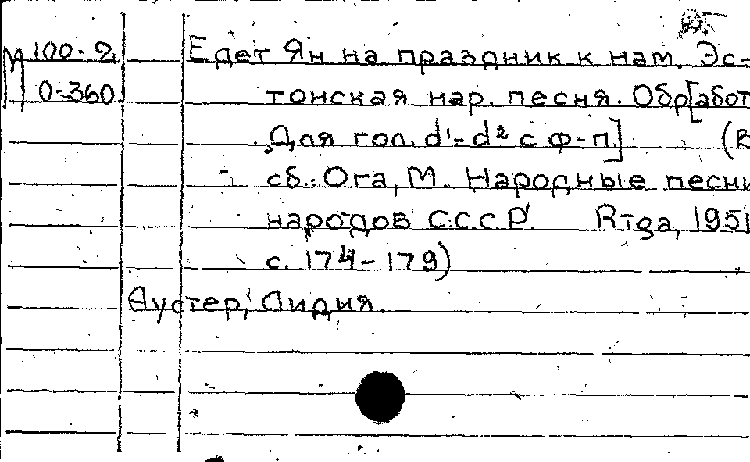 М 100-2 Едет Ян на праздник к нам. Эс-
0-360 тонская нар. песня. Обр[абот
Для гол. d¹-d² с ф-п.] (В
сб.: Ога, М. Народные песни
народов С.С.С.Р. Rīga, 1951
с. 174-179)
Аустер, Лидия.